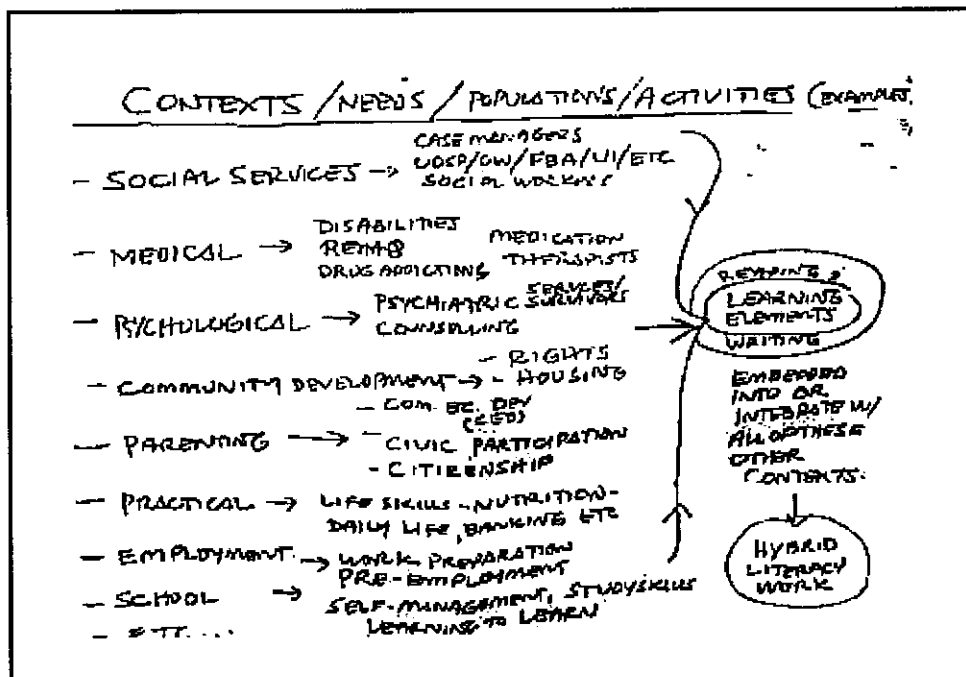 CONTEXTS / NEEDS / POPULATIONS / ACTIVITIES (EXAMPLES,
- SOCIAL SERVICES → CASE MANAGERS
/ FBA / UI / ETC
SOCIAL WORKERS
- MEDICAL → DISABILITIES
MEDICATION
DRUG ADDICTIONS THERAPISTS
- PSYCHOLOGICAL → PSYCHIATRIC SERVICES/
SURVIVORS
COUNSELLING
- COMMUNITY DEVELOPMENT → - RIGHTS
- HOUSING
- COM. EC. DEV
(CED)
- PARENTING → - CIVIC PARTICIPATION
- CITIZENSHIP
- PRACTICAL → LIFE SKILLS - NUTRITION -
DAILY LIFE, BANKING ETC
- EMPLOYMENT → WORK PREPARATION
PRE-EMPLOYMENT
- SCHOOL → SELF-MANAGEMENT, STUDY SKILLS
LEARNING TO LEARN
- ETC....
READING &
LEARNING
ELEMENTS
WRITING
EMBEDDED
INTO OR
INTEGRATE W/
ALL OF THESE
OTHER
CONTEXTS.
HYBRID
LITERACY
WORK